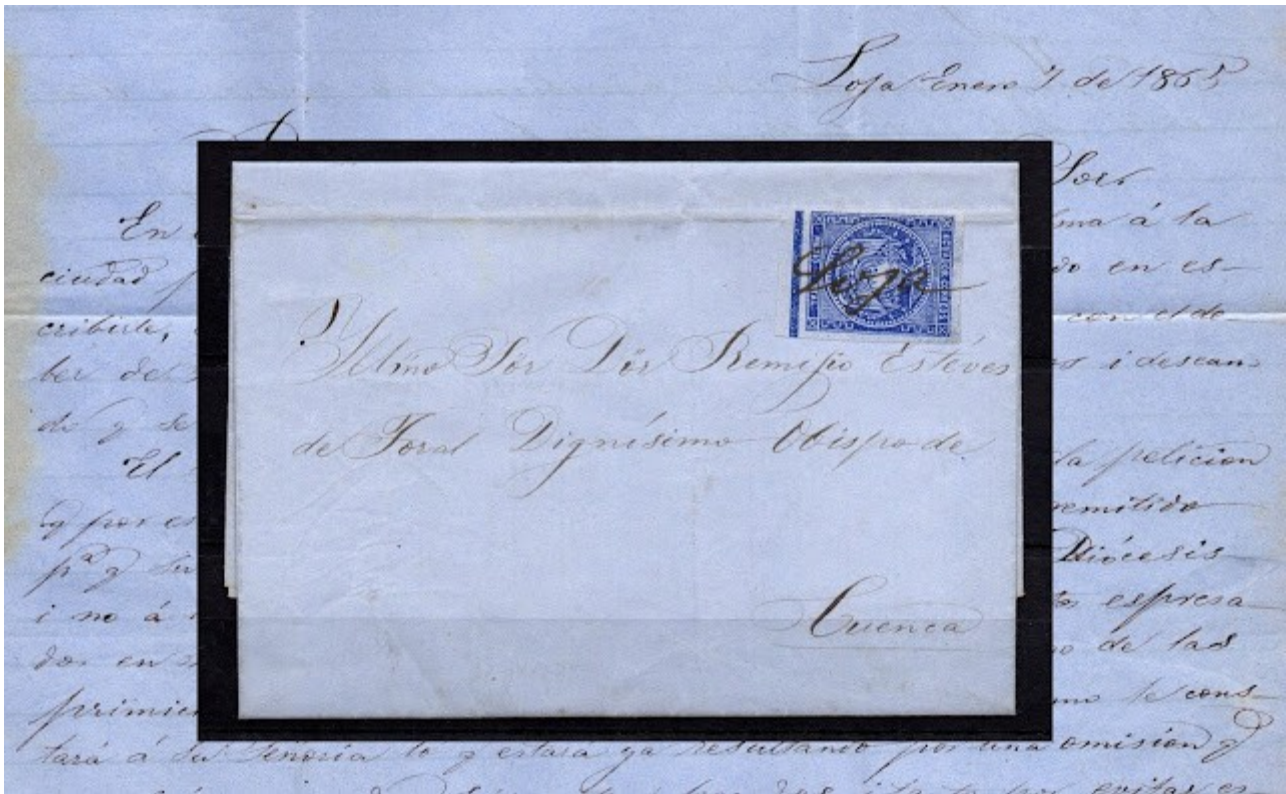 Loja Enero 7 de 1865
Sor
En
ma á la
ciudad
do en es-
cribirle,
con el de
ber de
os i desean-
do q se
El
la peticion
q por es
remitido
pª q su
Diócesis
i no á
tos espresa
dos en
no de las
primier
mo le cons-
tará á su Señoria lo q estará ya resultando por una omision q
por evitar es-
Loja
Iltmo Sór Dór Remijio Estéves
de Toral Dignísimo Obispo de
Cuenca